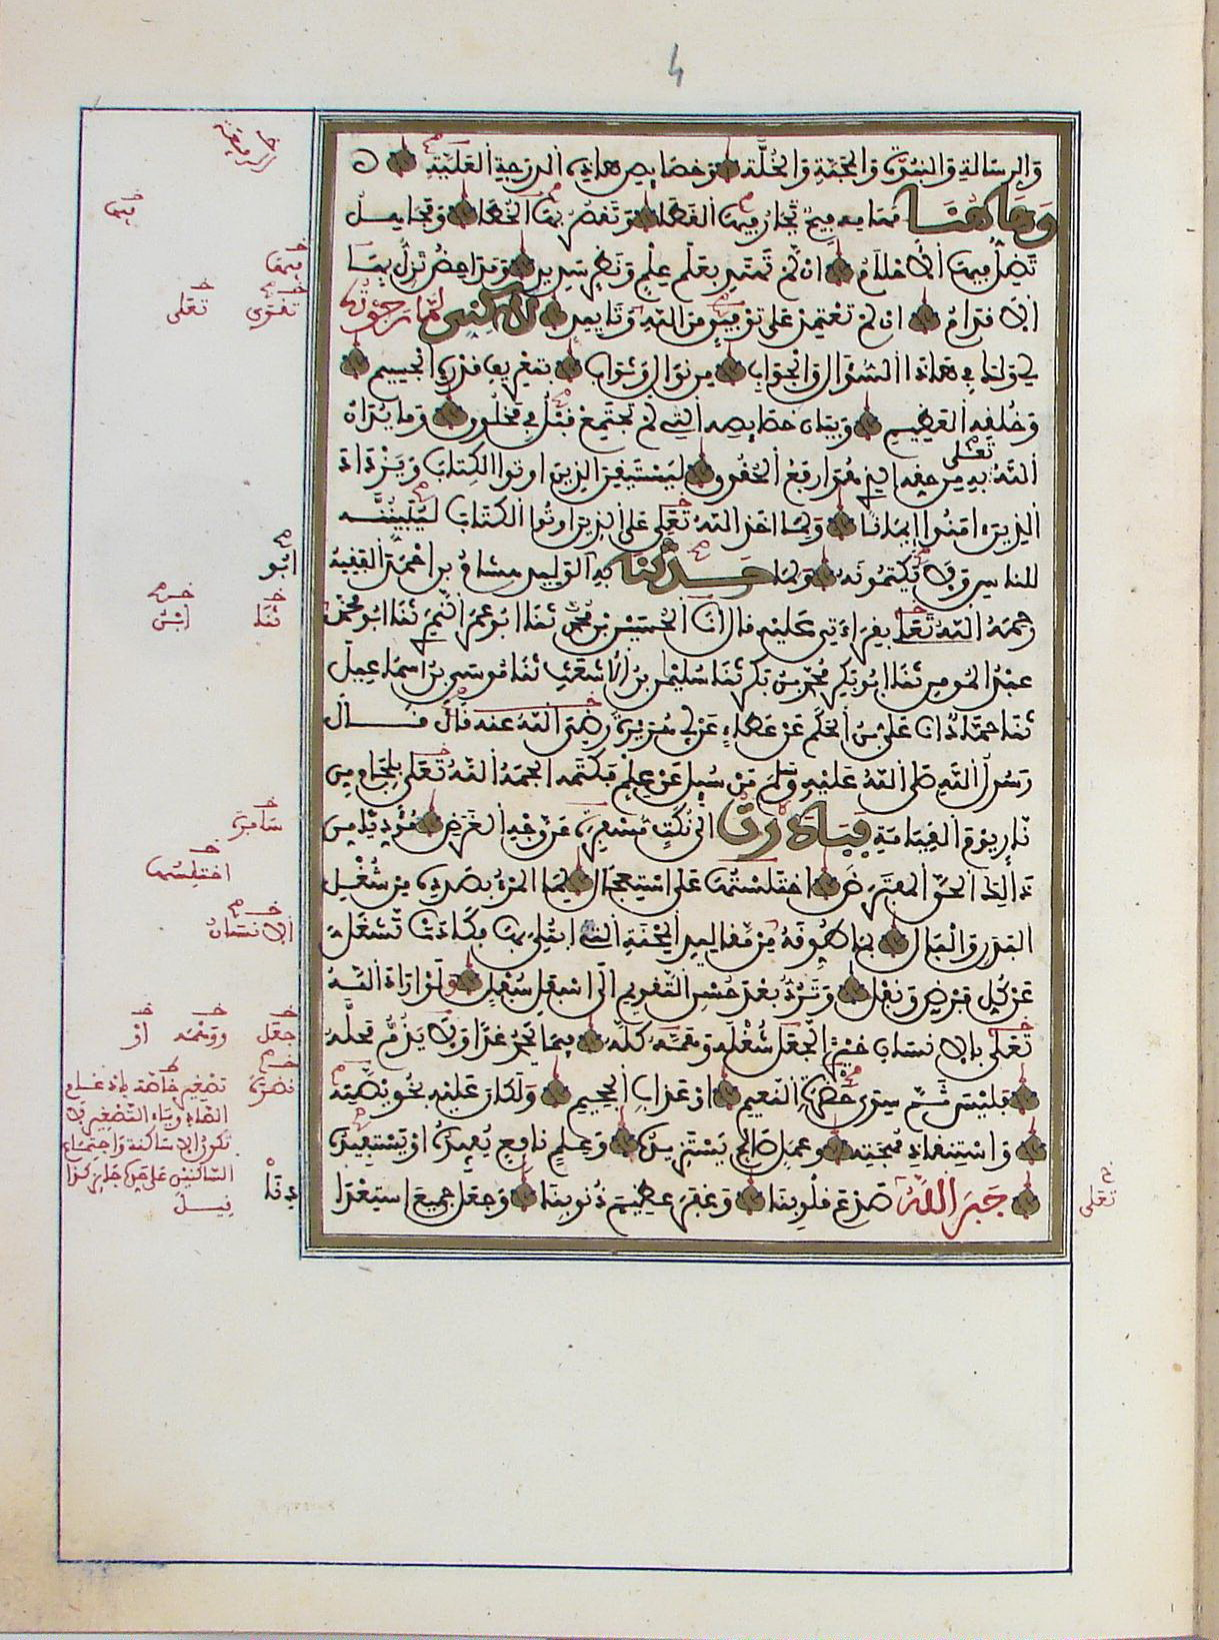 وَالرِّسَالَةِ وَالنُّبُوَّةِ وَالْمَحَبَّةِ وَالْخُلَّةِ وَخَصَايِصِ هَاذِهِ الدَّرَجَةِ الْعَلِيَّةِ
وَهَاهُنَا مَهَامِهُ فِيحٌ تَحَارُ فِيهَا الْقَطَا وَتَقْصُرُ بِهَا الْخُطَا وَمَجَاهِيلُ
تَضِلُّ فِيهَا الْأَحْلَامُ إِنْ لَمْ تَهْتَدِ بِعَلَمِ عِلْمٍ وَنَظَرٍ سَدِيدٍ وَمَدَاحِضُ تَزِلُّ بِهَا
الْأَقْدَامُ إِنْ لَمْ تَعْتَمِدْ عَلَى تَوْفِيقٍ مِنَ اللَّهِ وَتَأْيِيدٍ لَاكِنِّي لِمَا رَجَوْتُهُ
لِي وَلَكَ فِي هَاذَا السُّؤَالِ وَالْجَوَابِ مِنْ نَوَالٍ وَثَوَابٍ بِتَعْرِيفِ قَدْرِهِ الْجَسِيمِ
وَخُلُقِهِ الْعَظِيمِ وَبَيَانِ خَصَايِصِهِ الَّتِي لَمْ تَجْتَمِعْ قَبْلُ فِي مَخْلُوقٍ وَمَا يُدَانُ
اللَّهُ تَعَلَى بِهِ مِنْ حَقِّهِ الَّذِي هُوَ أَرْفَعُ الْحُقُوقِ لِيَسْتَيْقِنَ الَّذِينَ أُوتُوا الْكِتَابَ وَيَزْدَادَ
الَّذِينَ ءَامَنُوا إِيمَانًا وَلِمَا أَخَذَ اللَّهُ تَعَلَى عَلَى الَّذِينَ أُوتُوا الْكِتَابَ لَيُبَيِّنُنَّهُ
لِلنَّاسِ وَلَا يَكْتُمُونَهُ وَلِمَا حَدَّثَنَا بِهِ أَبُو الْوَلِيدِ هِشَامُ بْنُ أَحْمَدَ الْفَقِيهُ
رَحِمَهُ اللَّهُ تَعَلَى بِقِرَاءَتِي عَلَيْهِ قَالَ نَا الْحُسَيْنُ بْنُ مُحَمَّدٍ ثَنَا أَبُو عُمَرَ النَّمَرِيُّ ثَنَا أَبُو مُحَمَّدِ
عَبْدُ الْمُومِنِ ثَنَا أَبُو بَكْرٍ مُحَمَّدُ بْنُ بَكْرٍ ثَنَا سُلَيْمَانُ بْنُ الْأَشْعَثِ ثَنَا مُوسَى بْنُ إِسْمَاعِيلَ
ثَنَا حَمَّادٌ انَا عَلِيُّ بْنُ الْحَكَمِ عَنْ عَطَاءٍ عَنْ أَبِي هُرَيْرَةَ رَضِيَ اللَّهُ عَنْهُ قَالَ قَالَ
رَسُولُ اللَّهِ صَلَّى اللَّهُ عَلَيْهِ وَسَلَّمَ مَنْ سُئِلَ عَنْ عِلْمٍ فَكَتَمَهُ أَلْجَمَهُ اللَّهُ تَعَلَى بِلِجَامٍ مِنْ
نَارٍ يَوْمَ الْقِيَامَةِ فَبَادَرْتُ إِلَى نُكَتٍ مُسْفِرَةٍ عَنْ وَجْهِ الْغَرَضِ مُؤَدِّيًا مِنْ
ذَالِكَ الْحَقَّ الْمُفْتَرَضَ اخْتَلَسْتُهَا عَلَى اسْتِعْجَالٍ لِمَا الْمَرْءُ بِصَدَدِهِ مِنْ شُغْلِ
الْبَدَنِ وَالْبَالِ بِمَا طُوِّقَهُ مِنْ مَقَالِيدِ الْمِحْنَةِ الَّتِي ابْتُلِيَ بِهَا فَكَادَتْ تَشْغَلُ
عَنْ كُلِّ فَرْضٍ وَنَفْلٍ وَتَرُدُّ بَعْدَ حُسْنِ التَّقْوِيمِ إِلَى أَسْفَلِ سُفْلٍ وَلَوْ أَرَادَ اللَّهُ
تَعَلَى بِالْإِنْسَانِ خَيْرًا لَجَعَلَ شُغْلَهُ وَهَمَّهُ كُلَّهُ فِيمَا يُحْمَدُ غَدًا وَلَا يُذَمُّ مَحَلُّهُ
فَلَيْسَ ثَمَّ سِوَى حَضْرَةِ النَّعِيمِ أَوْ عَذَابِ الْجَحِيمِ وَلَكَانَ عَلَيْهِ بِخُوَيْصَتِهِ
وَاسْتِنْقَاذِ مُهْجَتِهِ وَعَمَلٍ صَالِحٍ يَسْتَزِيدُهُ وَعِلْمٍ نَافِعٍ يُفِيدُهُ أَوْ يَسْتَفِيدُهُ
جَبَرَ اللَّهُ صَدْعَ قُلُوبِنَا وَغَفَرَ عَظِيمَ ذُنُوبِنَا وَجَعَلَ جَمِيعَ اسْتِعْدَا
دِنَا
بِهَا
فِيهَا
تَقْوَى تَعَلَى
أَبُو
ثَنَا ابْنُ
اخْتَلَسْتُهَا
الْإِنْسَانُ
جَعَلَ وَهَمَّهُ أَوْ
نَضْرَة
تَصْغِيرُ خَاصَّة بِإِدْغَامِ
الصَّادِ وَيَاءُ التَّصْغِيرِ لَا
تَكُونُ إِلَّا سَاكِنَة وَاجْتِمَاع
السَّاكِنَيْنِ عَلَى جَائِز كَذَا
قِيلَ
تَعَلَى